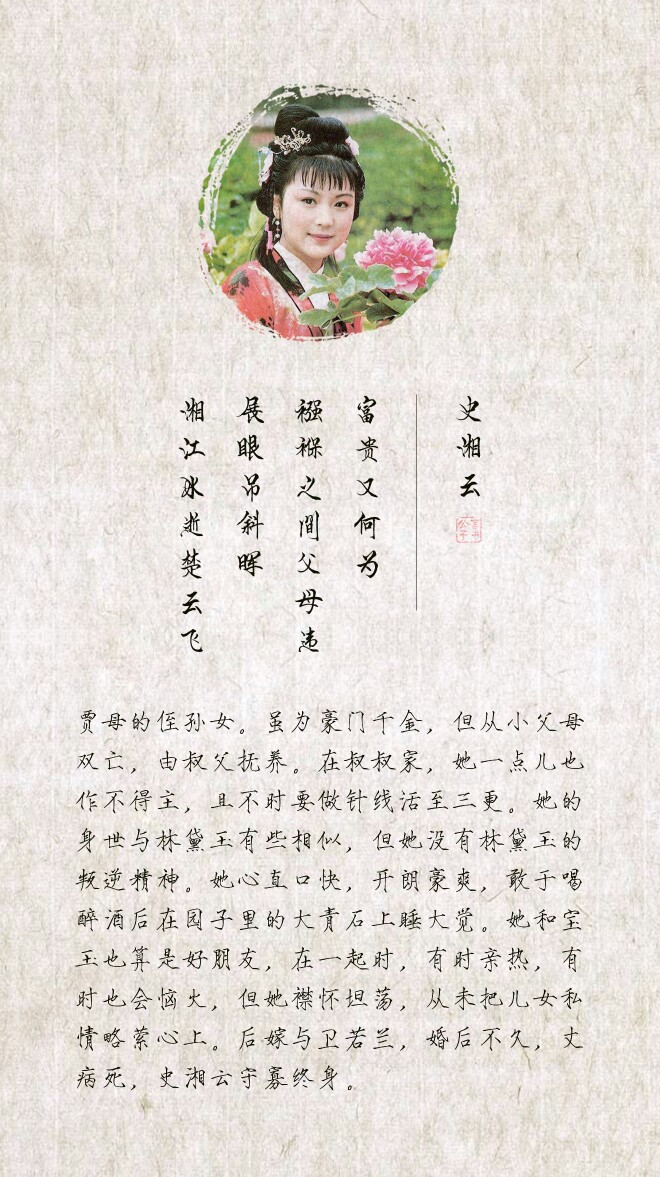 史湘云
富贵又何为
襁褓之间父母违
展眼吊斜晖
湘江水逝楚云飞
贾母的侄孙女。虽为豪门千金，但从小父母
双亡，由叔父抚养。在叔叔家，她一点儿也
作不得主，且不时要做针线活至三更。她的
身世与林黛玉有些相似，但她没有林黛玉的
叛逆精神。她心直口快，开朗豪爽，敢于喝
醉酒后在园子里的大青石上睡大觉。她和宝
玉也算是好朋友，在一起时，有时亲热，有
时也会恼火，但她襟怀坦荡，从未把儿女私
情略萦心上。后嫁与卫若兰，婚后不久，丈
病死，史湘云守寡终身。